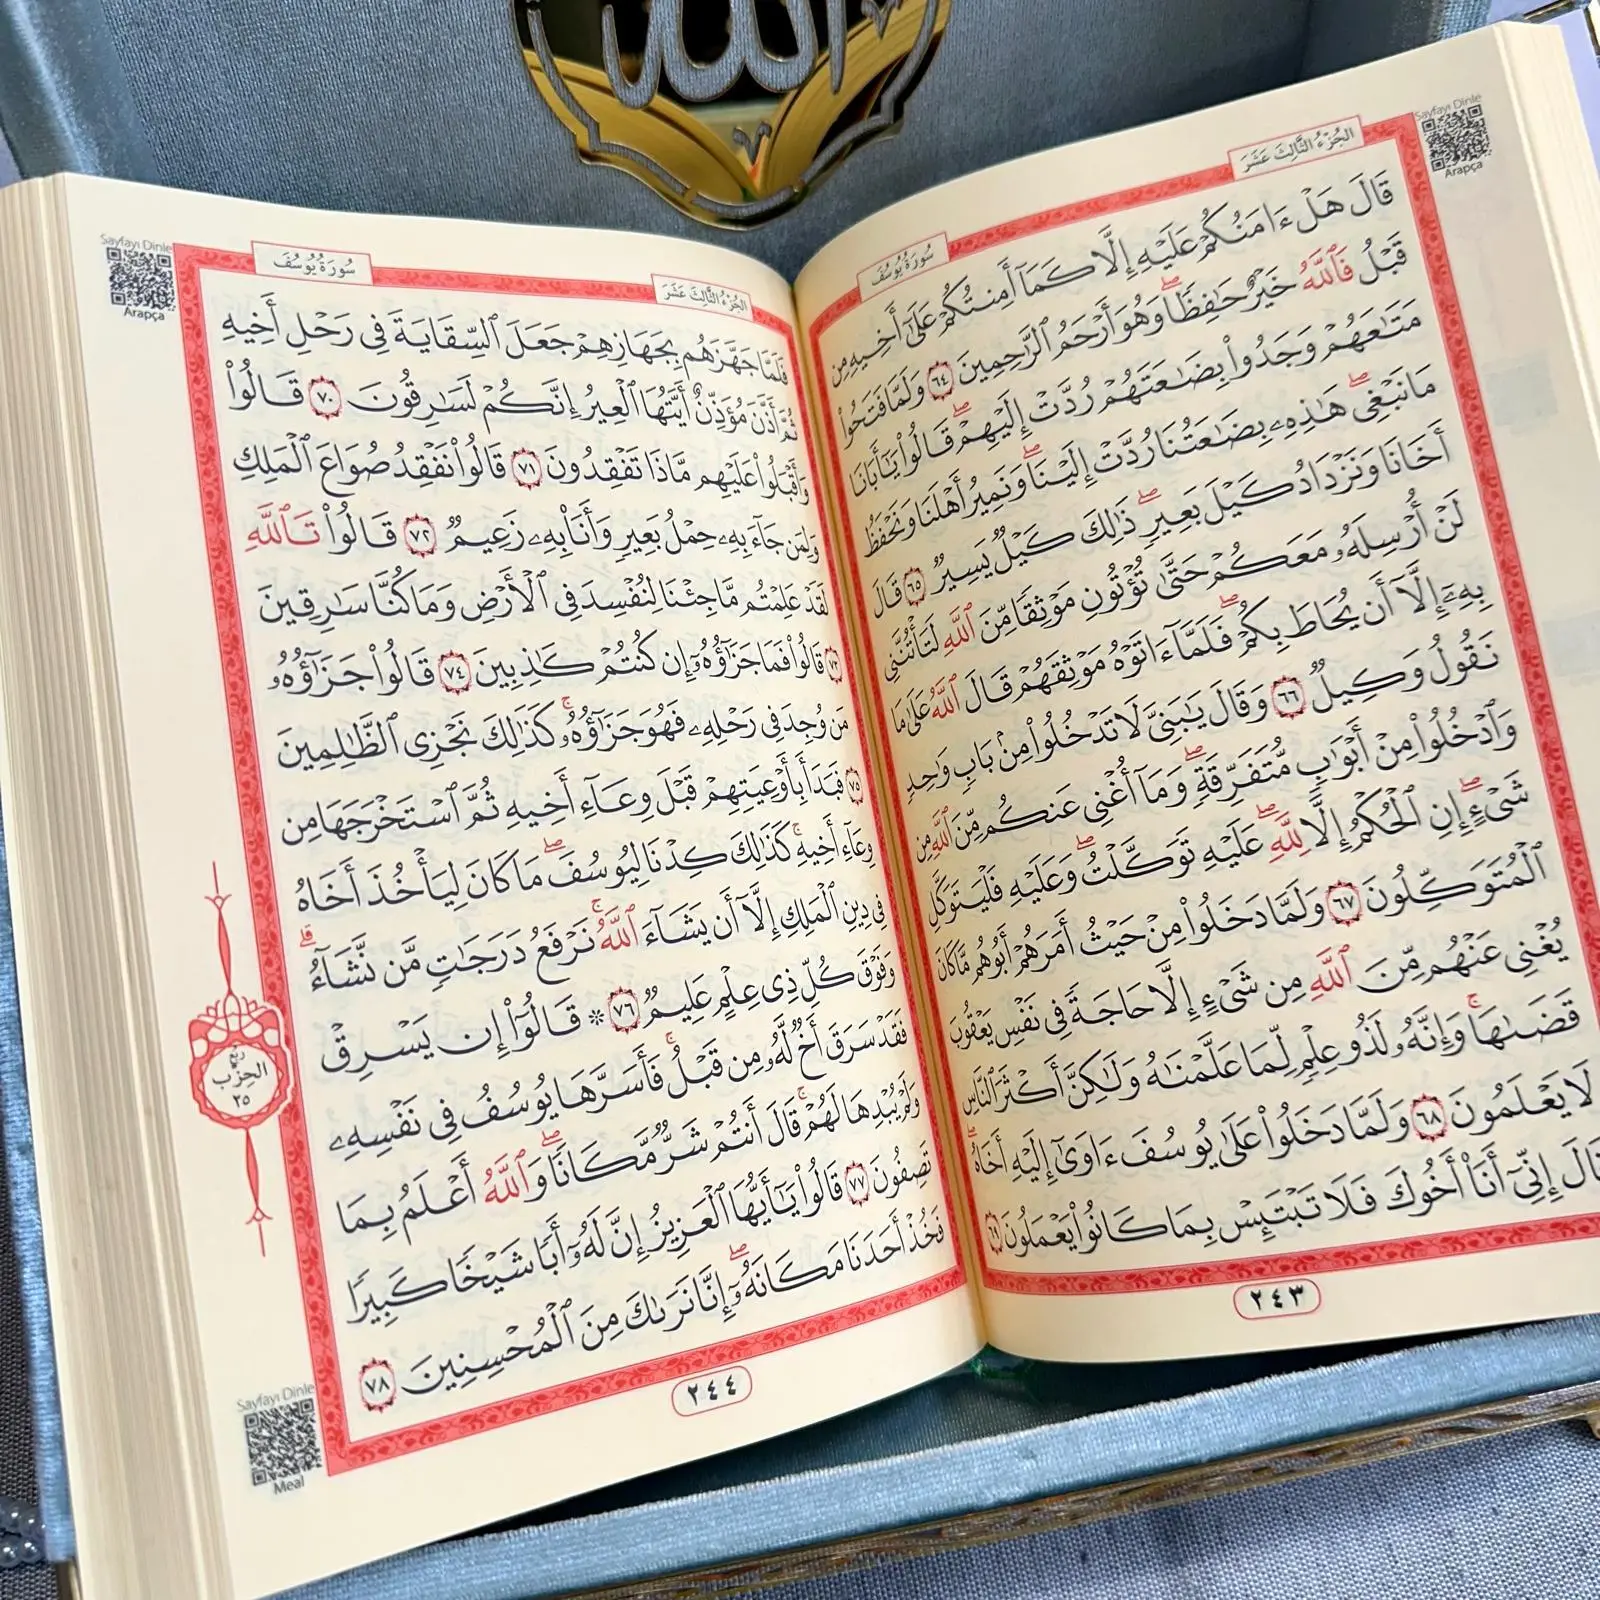 الله
Sayfayı Dinle
Arapça
الجُزْءُ الثَّالِثَ عَشَرَ
سُورَةُ يُوسُفَ
قَالَ هَلْ ءَامَنُكُمْ عَلَيْهِ إِلَّا كَمَآ أَمِنتُكُمْ عَلَىٰٓ أَخِيهِ مِن
قَبْلُ فَٱللَّهُ خَيْرٌ حَٰفِظًا ۖ وَهُوَ أَرْحَمُ ٱلرَّٰحِمِينَ ٦٤ وَلَمَّا فَتَحُوا۟
مَتَٰعَهُمْ وَجَدُوا۟ بِضَٰعَتَهُمْ رُدَّتْ إِلَيْهِمْ ۖ قَالُوا۟ يَٰٓأَبَانَا
مَا نَبْغِى ۖ هَٰذِهِۦ بِضَٰعَتُنَا رُدَّتْ إِلَيْنَا ۖ وَنَمِيرُ أَهْلَنَا وَنَحْفَظُ
أَخَانَا وَنَزْدَادُ كَيْلَ بَعِيرٍ ۖ ذَٰلِكَ كَيْلٌ يَسِيرٌ ٦٥ قَالَ
لَنْ أُرْسِلَهُۥ مَعَكُمْ حَتَّىٰ تُؤْتُونِ مَوْثِقًا مِّنَ ٱللَّهِ لَتَأْتُنَّنِى
بِهِۦٓ إِلَّآ أَن يُحَاطَ بِكُمْ ۖ فَلَمَّآ ءَاتَوْهُ مَوْثِقَهُمْ قَالَ ٱللَّهُ عَلَىٰ مَا
نَقُولُ وَكِيلٌ ٦٦ وَقَالَ يَٰبَنِىَّ لَا تَدْخُلُوا۟ مِنۢ بَابٍ وَٰحِدٍ
وَٱدْخُلُوا۟ مِنْ أَبْوَٰبٍ مُّتَفَرِّقَةٍ ۖ وَمَآ أُغْنِى عَنكُم مِّنَ ٱللَّهِ مِن
شَىْءٍ ۖ إِنِ ٱلْحُكْمُ إِلَّا لِلَّهِ ۖ عَلَيْهِ تَوَكَّلْتُ ۖ وَعَلَيْهِ فَلْيَتَوَكَّلِ
ٱلْمُتَوَكِّلُونَ ٦٧ وَلَمَّا دَخَلُوا۟ مِنْ حَيْثُ أَمَرَهُمْ أَبُوهُم مَّا كَانَ
يُغْنِى عَنْهُم مِّنَ ٱللَّهِ مِن شَىْءٍ إِلَّا حَاجَةً فِى نَفْسِ يَعْقُوبَ
قَضَىٰهَا ۚ وَإِنَّهُۥ لَذُو عِلْمٍ لِّمَا عَلَّمْنَٰهُ وَلَٰكِنَّ أَكْثَرَ ٱلنَّاسِ
لَا يَعْلَمُونَ ٦٨ وَلَمَّا دَخَلُوا۟ عَلَىٰ يُوسُفَ ءَاوَىٰٓ إِلَيْهِ أَخَاهُ ۖ
قَالَ إِنِّىٓ أَنَا۠ أَخُوكَ فَلَا تَبْتَئِسْ بِمَا كَانُوا۟ يَعْمَلُونَ ٦٩
٢٤٣
Sayfayı Dinle
Arapça
الجُزْءُ الثَّالِثَ عَشَرَ
سُورَةُ يُوسُفَ
فَلَمَّا جَهَّزَهُم بِجَهَازِهِمْ جَعَلَ ٱلسِّقَايَةَ فِى رَحْلِ أَخِيهِ
ثُمَّ أَذَّنَ مُؤَذِّنٌ أَيَّتُهَا ٱلْعِيرُ إِنَّكُمْ لَسَٰرِقُونَ ٧٠ قَالُوا۟
وَأَقْبَلُوا۟ عَلَيْهِم مَّاذَا تَفْقِدُونَ ٧١ قَالُوا۟ نَفْقِدُ صُوَاعَ ٱلْمَلِكِ
وَلِمَن جَآءَ بِهِۦ حِمْلُ بَعِيرٍ وَأَنَا۠ بِهِۦ زَعِيمٌ ٧٢ قَالُوا۟ تَٱللَّهِ
لَقَدْ عَلِمْتُم مَّا جِئْنَا لِنُفْسِدَ فِى ٱلْأَرْضِ وَمَا كُنَّا سَٰرِقِينَ
٧٣ قَالُوا۟ فَمَا جَزَٰٓؤُهُۥٓ إِن كُنتُمْ كَٰذِبِينَ ٧٤ قَالُوا۟ جَزَٰٓؤُهُۥ
مَن وُجِدَ فِى رَحْلِهِۦ فَهُوَ جَزَٰٓؤُهُۥ ۚ كَذَٰلِكَ نَجْزِى ٱلظَّٰلِمِينَ
٧٥ فَبَدَأَ بِأَوْعِيَتِهِمْ قَبْلَ وِعَآءِ أَخِيهِ ثُمَّ ٱسْتَخْرَجَهَا مِن
وِعَآءِ أَخِيهِ ۚ كَذَٰلِكَ كِدْنَا لِيُوسُفَ ۖ مَا كَانَ لِيَأْخُذَ أَخَاهُ
فِى دِينِ ٱلْمَلِكِ إِلَّآ أَن يَشَآءَ ٱللَّهُ ۚ نَرْفَعُ دَرَجَٰتٍ مَّن نَّشَآءُ ۗ
وَفَوْقَ كُلِّ ذِى عِلْمٍ عَلِيمٌ ٧٦ * قَالُوٓا۟ إِن يَسْرِقْ
فَقَدْ سَرَقَ أَخٌ لَّهُۥ مِن قَبْلُ ۚ فَأَسَرَّهَا يُوسُفُ فِى نَفْسِهِۦ
وَلَمْ يُبْدِهَا لَهُمْ ۚ قَالَ أَنتُمْ شَرٌّ مَّكَانًا ۖ وَٱللَّهُ أَعْلَمُ بِمَا
تَصِفُونَ ٧٧ قَالُوا۟ يَٰٓأَيُّهَا ٱلْعَزِيزُ إِنَّ لَهُۥٓ أَبًا شَيْخًا كَبِيرًا
فَخُذْ أَحَدَنَا مَكَانَهُۥٓ ۖ إِنَّا نَرَىٰكَ مِنَ ٱلْمُحْسِنِينَ ٧٨
ربع
الحزب
٢٥
٢٤٤
Sayfayı Dinle
Meal